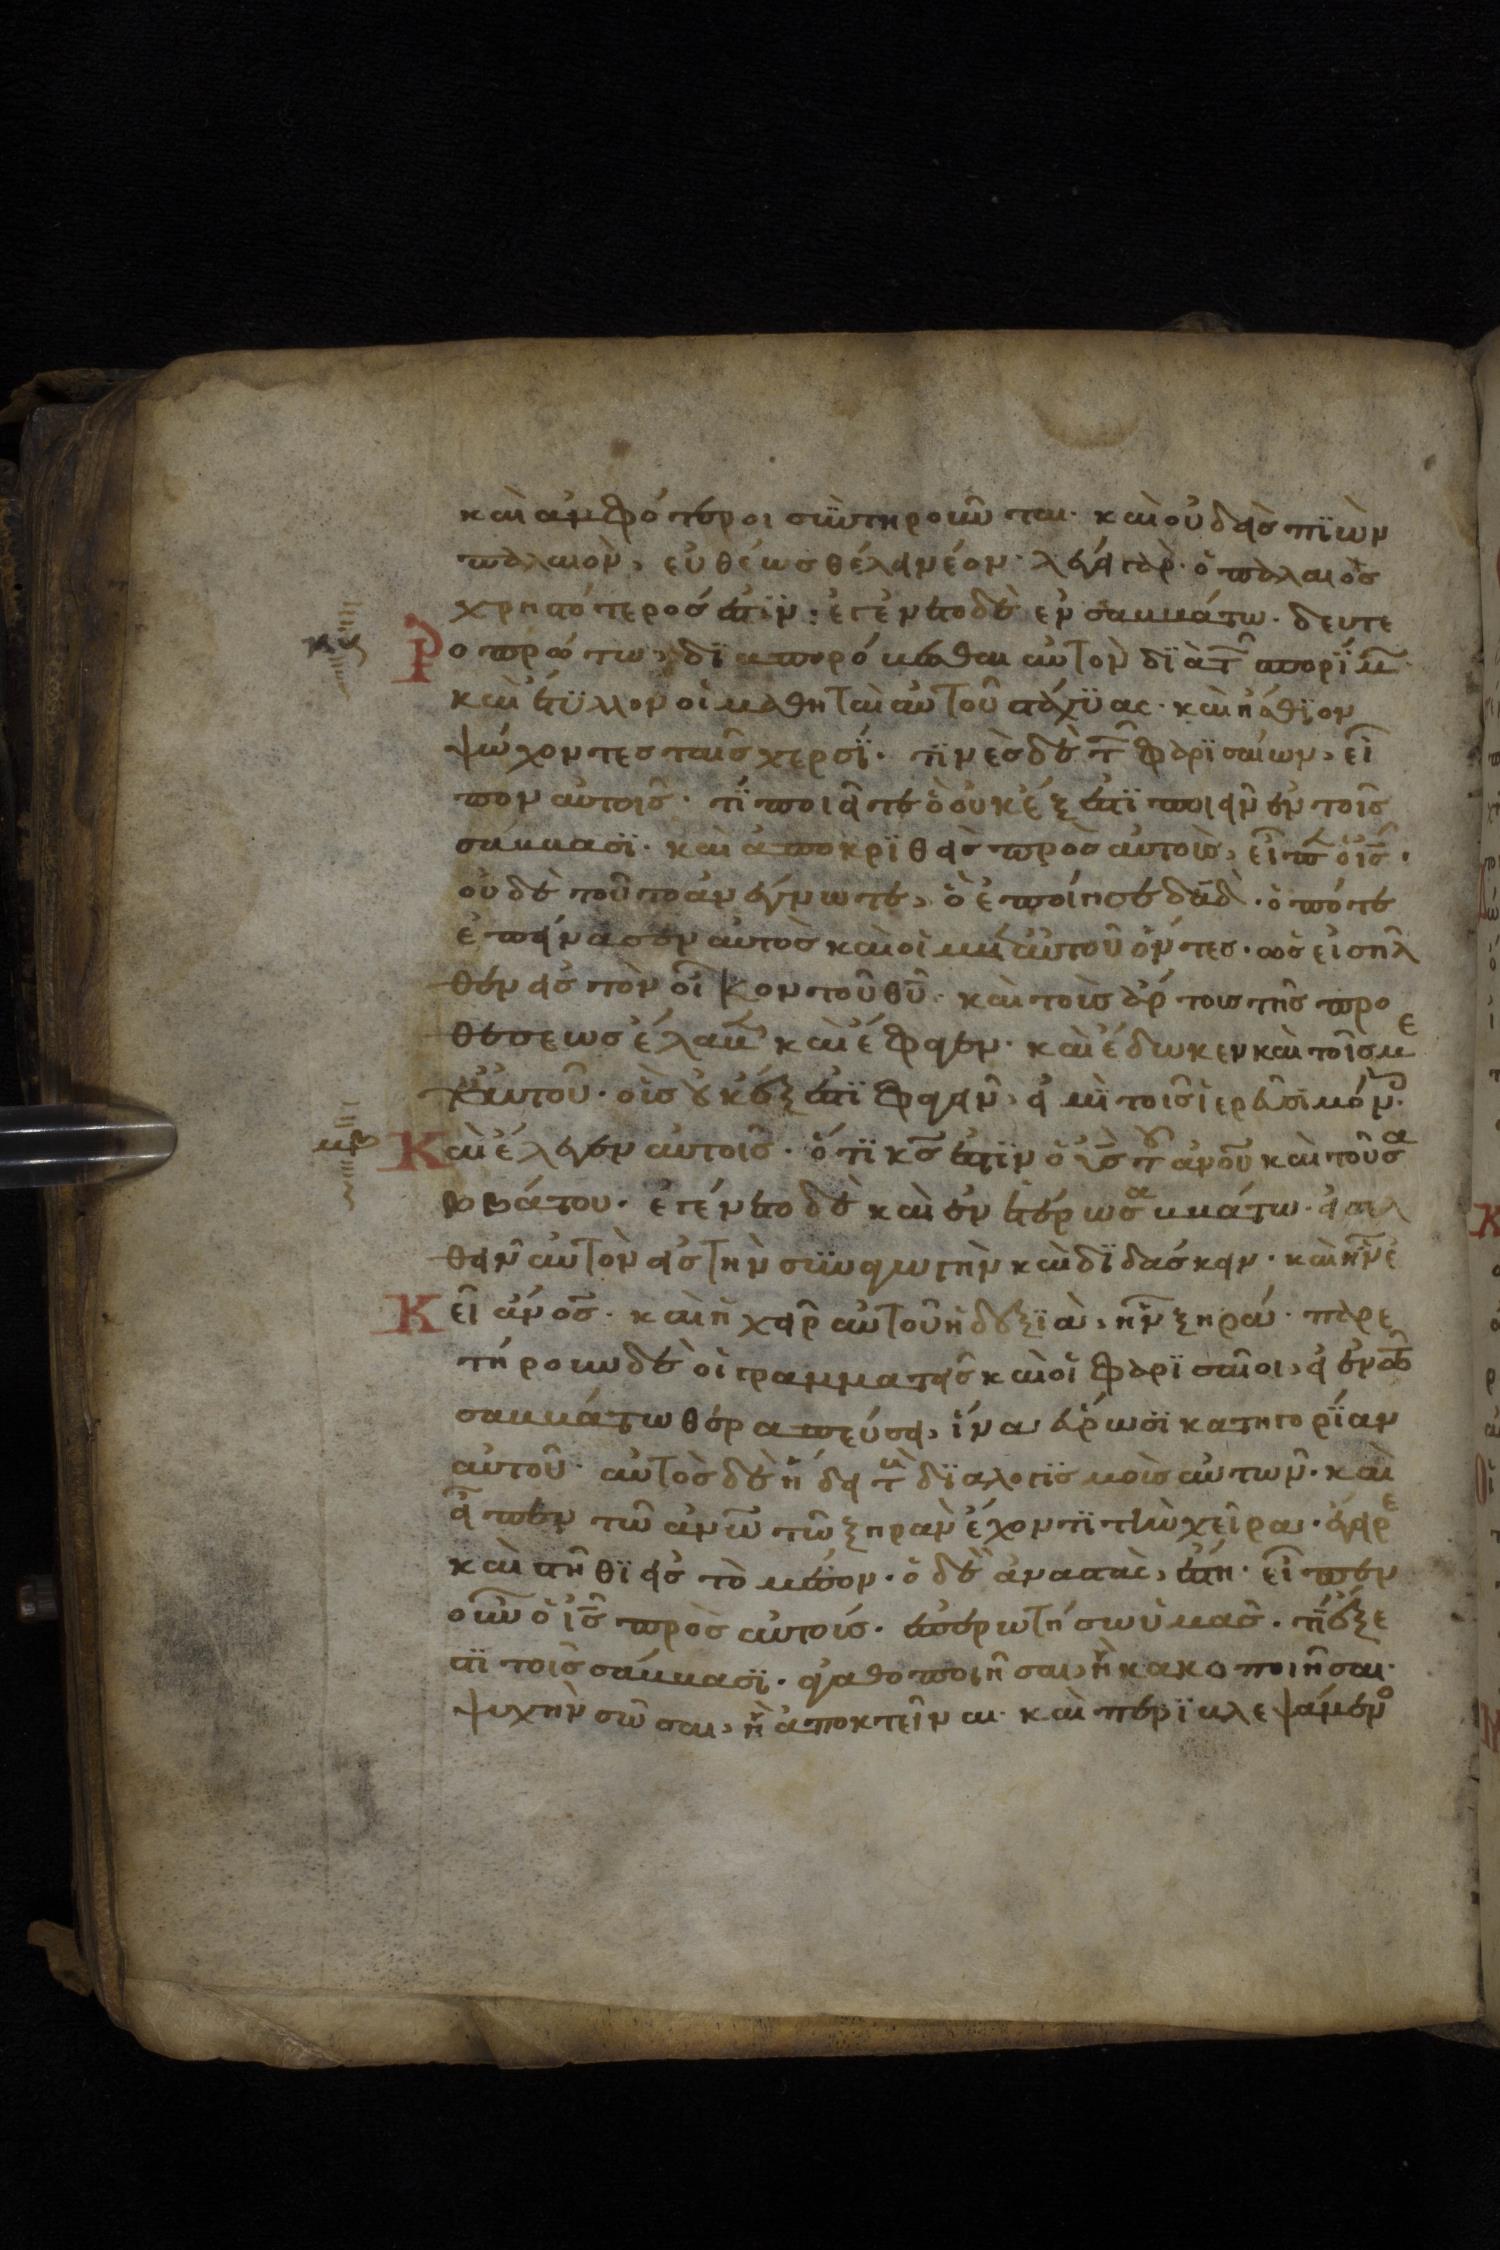 καὶ ἀμφότεροι συντηροῦνται· καὶ οὐδεὶς πιὼν
παλαιὸν, εὐθέως θέλει νέον· λέγει γὰρ· ὁ παλαιὸς
χρηστότερός ἐστιν· ἐγένετο δὲ ἐν σαββάτω· δευτε
ροπρώτω, διαπορεύεσθαι αὐτὸν διὰ τ̑ σπορίμ
καὶ ἔτιλλον οἱ μαθηταὶ αὐτοῦ στάχυας· καὶ ἤσθιον
ψώχοντες ταῖς χερσί· τινὲς δὲ τ̑ φαρισαίων, εἶ
πον αὐτοῖς· τί ποιεῖτε ὃ οὐκ έξεστι ποιεῖν ἐν τοῖς
σάββασι· καὶ ἀποκριθεὶς πρὸς αὐτοὺς, εἶπ ὁ ἰς̄·
οὐδὲ τοῦτο ἀνέγνωτε, ὃ ἐποίησε δᾱδ· ὁπότε
ἐπείνασεν αὐτὸς καὶ οἱ μετ αὐτοῦ ὄντες· ὡς εἰσῆλ
θεν εἰς τὸν οἶκον τοῦ θῡ· καὶ τοὺς ἄρτους τῆς προ
θέσεως ἔλαβ καὶ ἔφαγεν· καὶ ἔδωκεν καὶ τοῖς με
τ αὐτοῦ· οὓς οὐκ έξεστι φαγεῖν, εἰ μὴ τοῖς ἱερεῦσι μόν·
Καὶ έλεγεν αὐτοῖς· ὅτι κς̄ ἐστιν ὁ υς̄ τοῦ ἀνου καὶ τοῦ σα
ββάτου· ἐγένετο δὲ καὶ ἐν ἑτέρω σαββάτω· εἰσελ
θεῖν αὐτὸν εἰς τὴν συναγωγὴν καὶ διδάσκειν· καὶ ἦν ἐ
Κεῖ ἄνος̄· καὶ ἡ χεὶρ αὐτοῦ ἡ δεξιὰ, ἦν ξηρά· παρε
τήρουν δὲ οἱ γραμματεῖς καὶ οἱ φαρισαῖοι, εἰ ἐν τῶ
σαββάτω θεραπεύσει, ἵνα εὕρωσι κατηγορίαν
αὐτοῦ· αὐτὸς δὲ ἤδει τοὺς διαλογισμοὺς αὐτων· καὶ
εἶπεν τῶ ἀνω̄ τῶ ξηρὰν έχοντι τὴν χεῖρα· έγειρε
καὶ στῆθι εἰς τὸ μέσον· ὁ δὲ ἀναστὰς, έστη· εἶπεν
οὖν ὁ ἰς̄ πρὸς αὐτούς· ἐπερωτήσω ὑμᾶς· τί έξε
στι τοῖς σάββασι· ἀγαθοποιῆσαι, ἢ κακοποιῆσαι·
ψυχὴν σῶσαι, ἢ ἀποκτεῖναι· καὶ περιβλεψάμενο